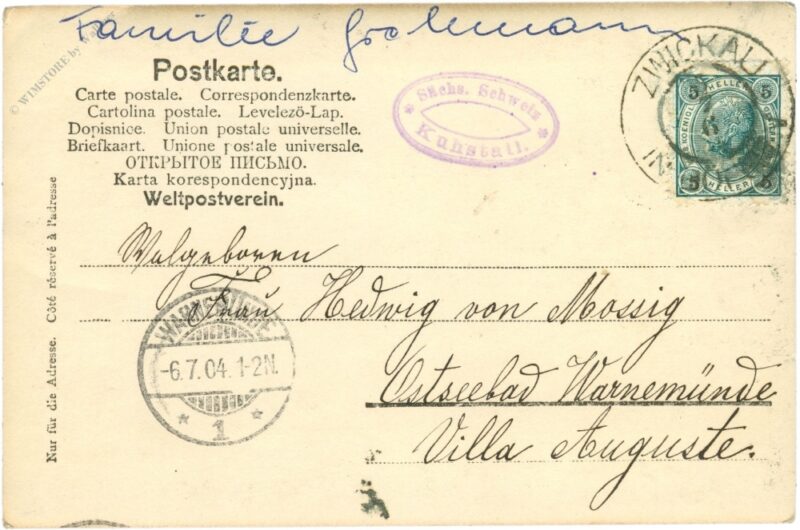 Familie
© WIMSTORE by
Postkarte.
Carte postale. Correspondenzkarte.
Cartolina postale. Levelező-Lap.
Dopisnice. Union postale universelle.
Briefkaart. Unione postale universale.
ОТКРЫТОЕ ПИСЬМО.
Karta korespondencyjna.
Weltpostverein.
* Sächs. Schweiz *
Kuhstall.
ZWICKAU
IN
5 HELLER 5
5 HELLER 5
Nur für die Adresse. Côté réservé à l'adresse
Wolgeboren
Frau Hedwig von Mossig
WARNEMÜNDE
-6.7.04. 1-2N.
* 1 *
Ostseebad Warnemünde
Villa Auguste.